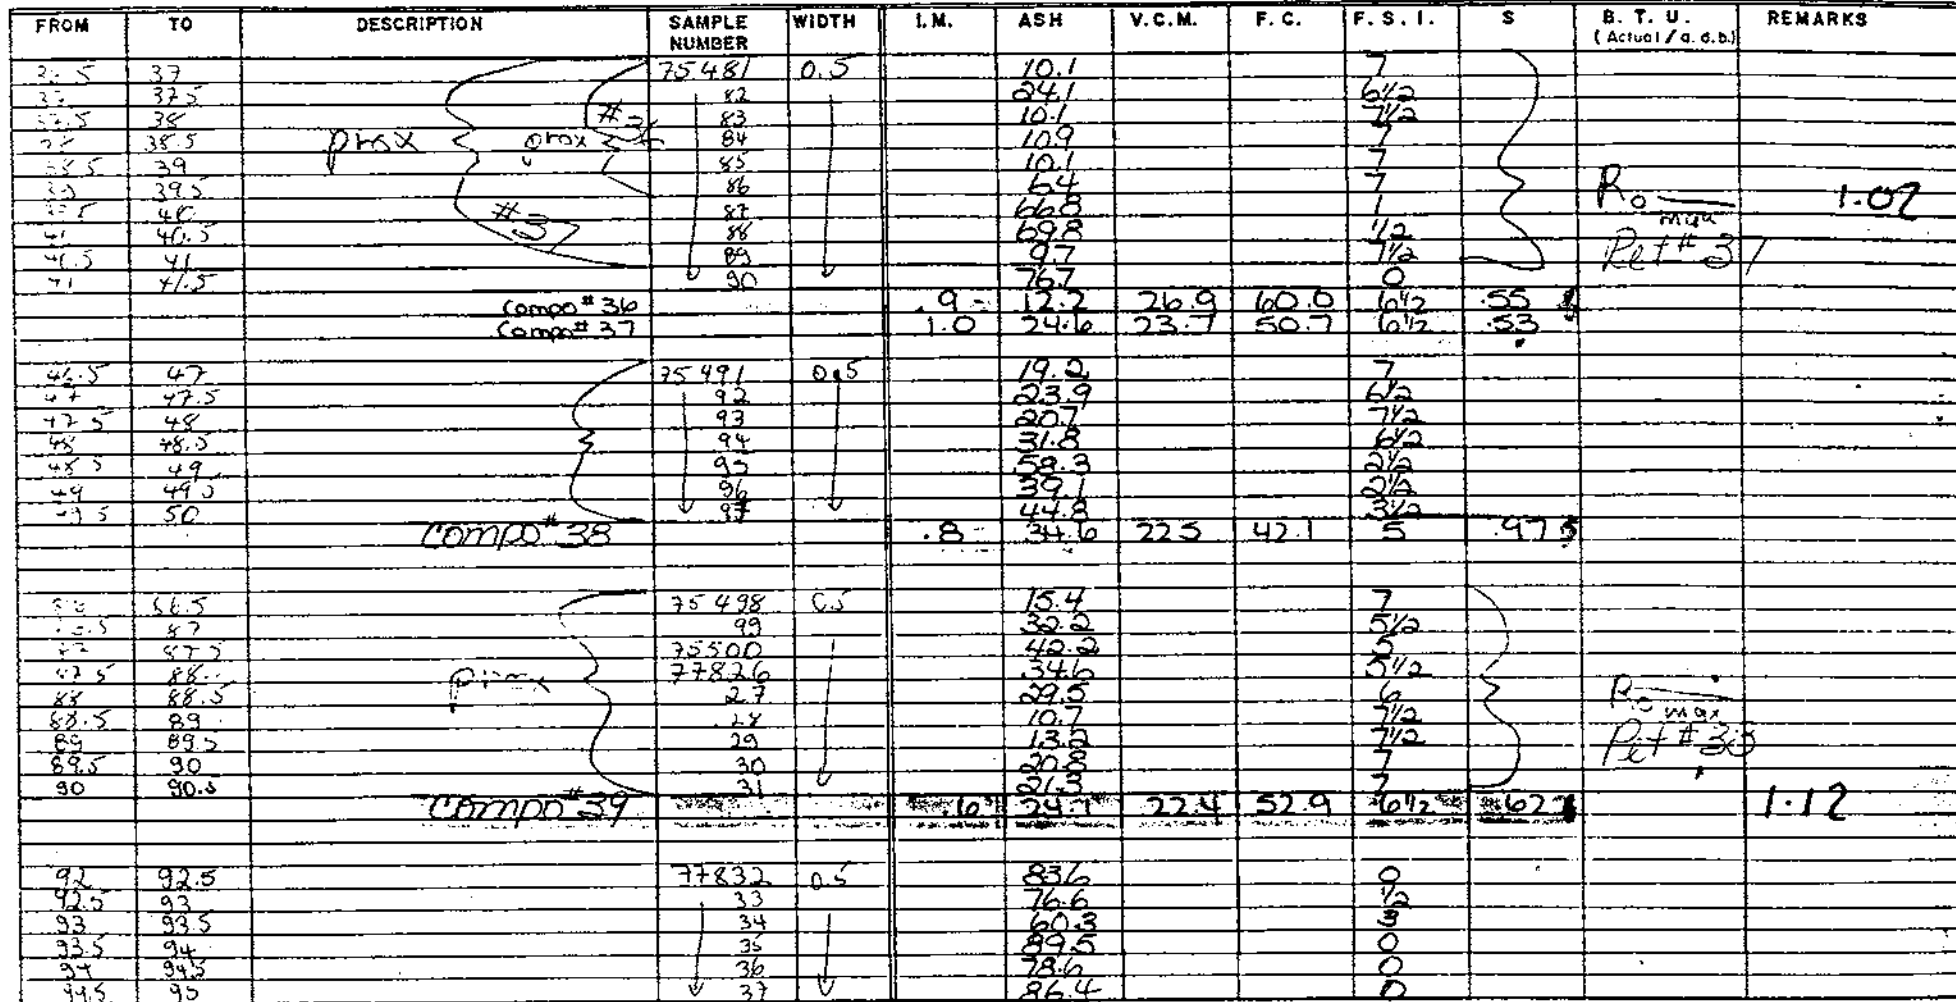 FROM TO DESCRIPTION SAMPLE NUMBER WIDTH I.M. ASH V.C.M. F.C. F.S.I. S B.T.U. (Actual / a.d.b.) REMARKS
37 75481 0.5 10.1 7
37.5 82 24.1 6 1/2
38 83 10.1 7 1/2
38.5 prox prox 84 10.9 7
39 85 10.1 7
39.5 86 6.4 7
40 #37 87 66.8 1 Ro max 1.02
40.5 88 69.8 1/2 Pet # 37
41 89 9.7
41 41.5 90 76.7 0
Compo # 36 .9 12.2 26.9 60.0 6 1/2 .55
Compo # 37 1.0 24.6 23.7 50.7 6 1/2 .53
46.5 47 75491 0.5 19.2 7
47 47.5 92 23.9 6 1/2
47.5 48 93 20.7 7 1/2
48 48.5 94 31.8 6 1/2
48.5 49 95 58.3 2 1/2
49 49.5 96 39.1 2 1/2
49.5 50 97 44.8 3 1/2
Compo # 38 .8 34.6 22.5 42.1 5 .97
86.5 75498 0.5 15.4 7
87 99 32.2 5 1/2
87.5 75500 42.2 5
87.5 88 77826 34.6 5 1/2
88 88.5 prox 27 29.5 6
88.5 89 28 10.7 7 1/2 Ro max
89 89.5 29 13.2 7 1/2 Pet #
89.5 90 30 20.8 7
90 90.5 31 21.3 7
Compo # 39 .6 24.1 22.4 52.9 6 1/2 .62 1.12
92 92.5 77832 0.5 83.6 0
92.5 93 33 76.6 1/2
93 93.5 34 60.3 3
93.5 94 35 89.5 0
94 94.5 36 78.6 0
94.5 95 37 86.4 0